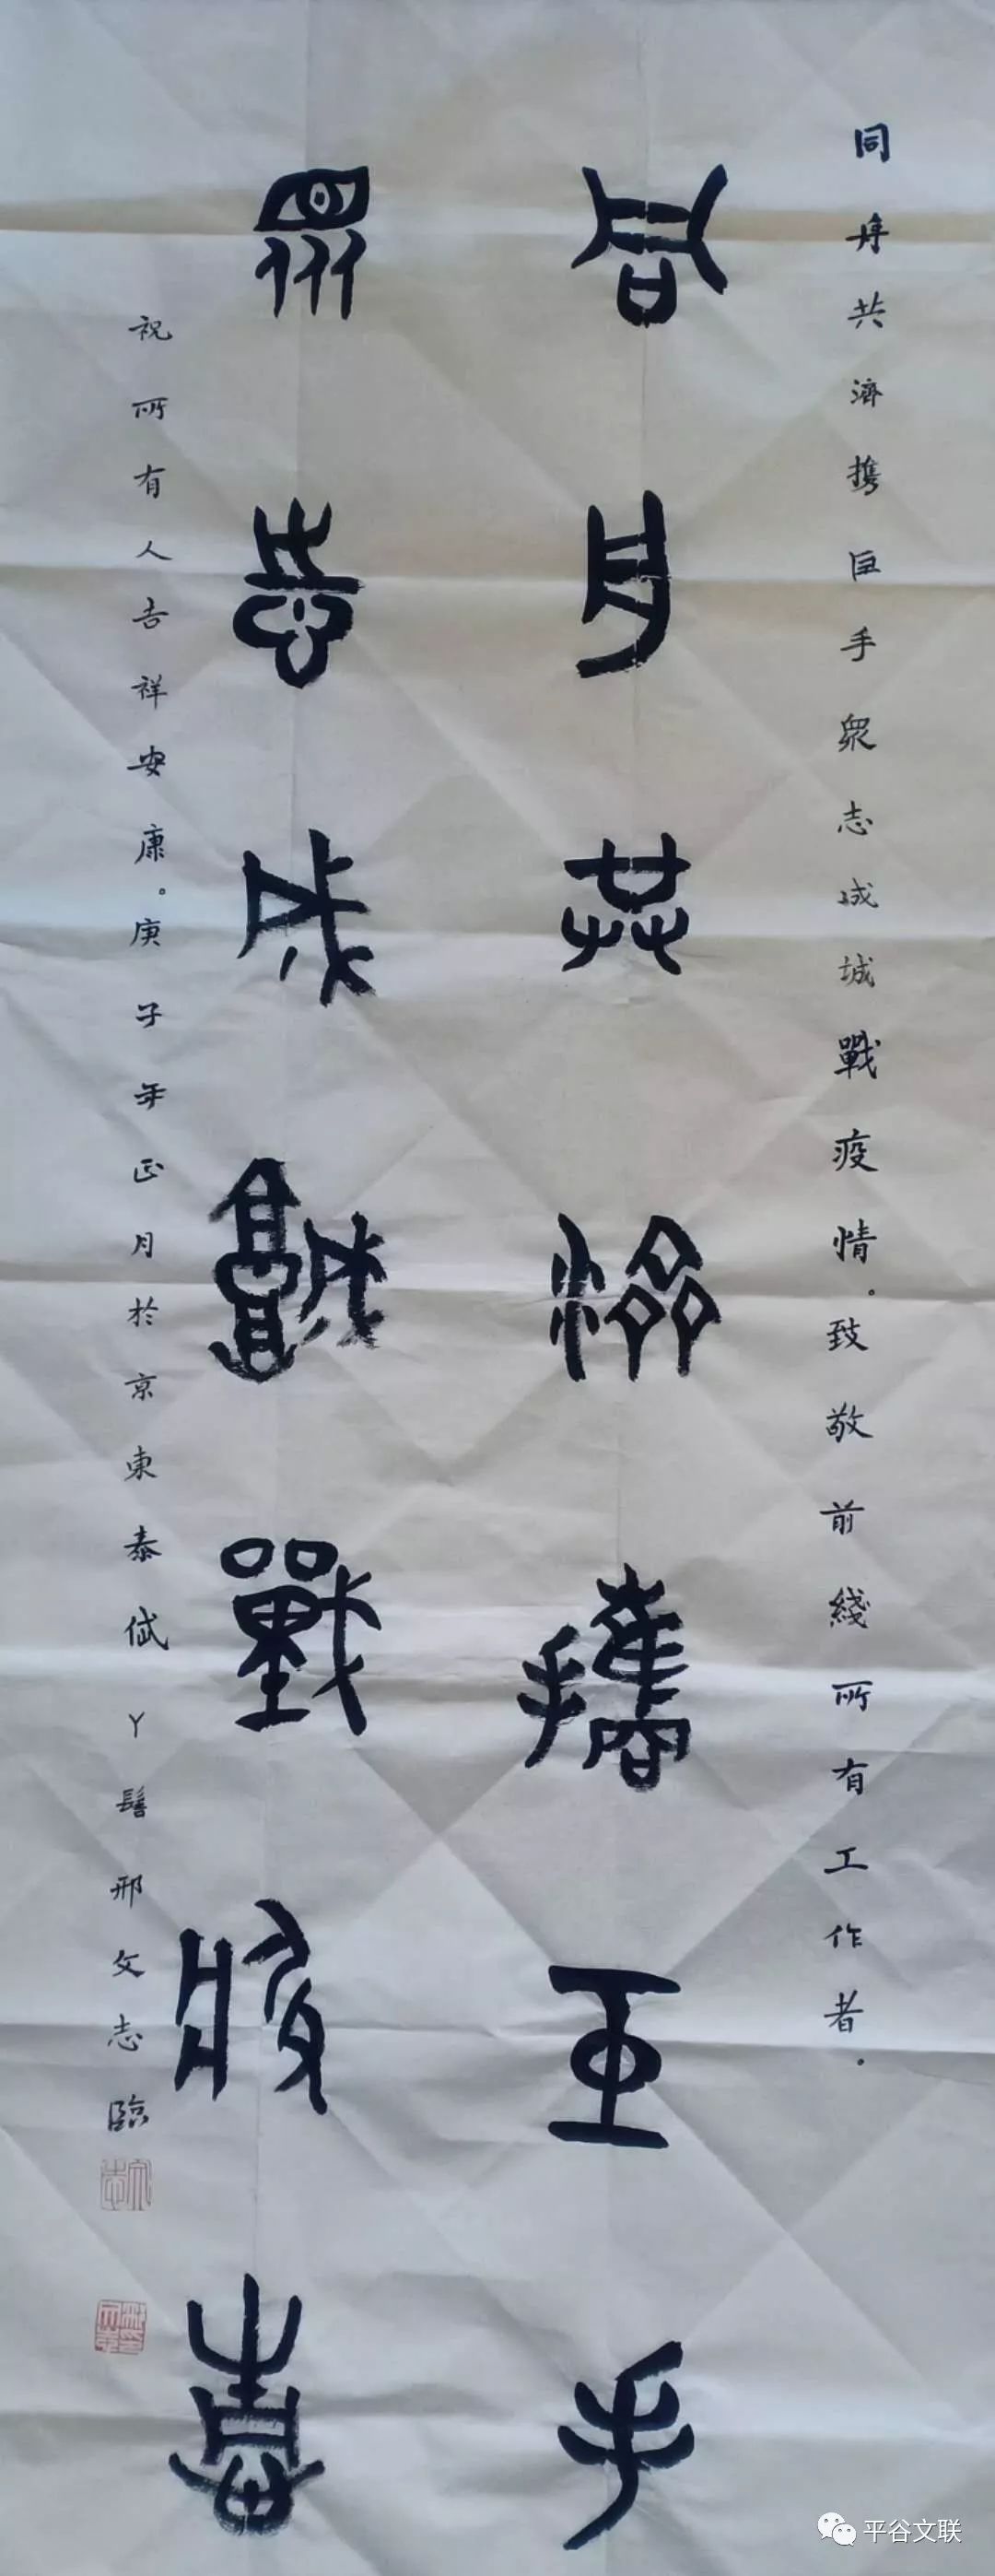 同舟共濟携巨手眾志成城戰疫情。致敬前綫所有工作者。
同舟共濟攜巨手
眾志成城戰疫情
祝所有人吉祥安康。庚子年正月於京東泰岱丫髻邢文志臨
平谷文联